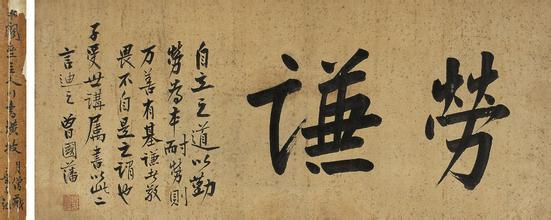 勞謙
自立之道以勤
勞為本耐勞則
万善有基謙者敬
畏不自是之謂也
子受世講屬書以此二
言迪之 曾國藩